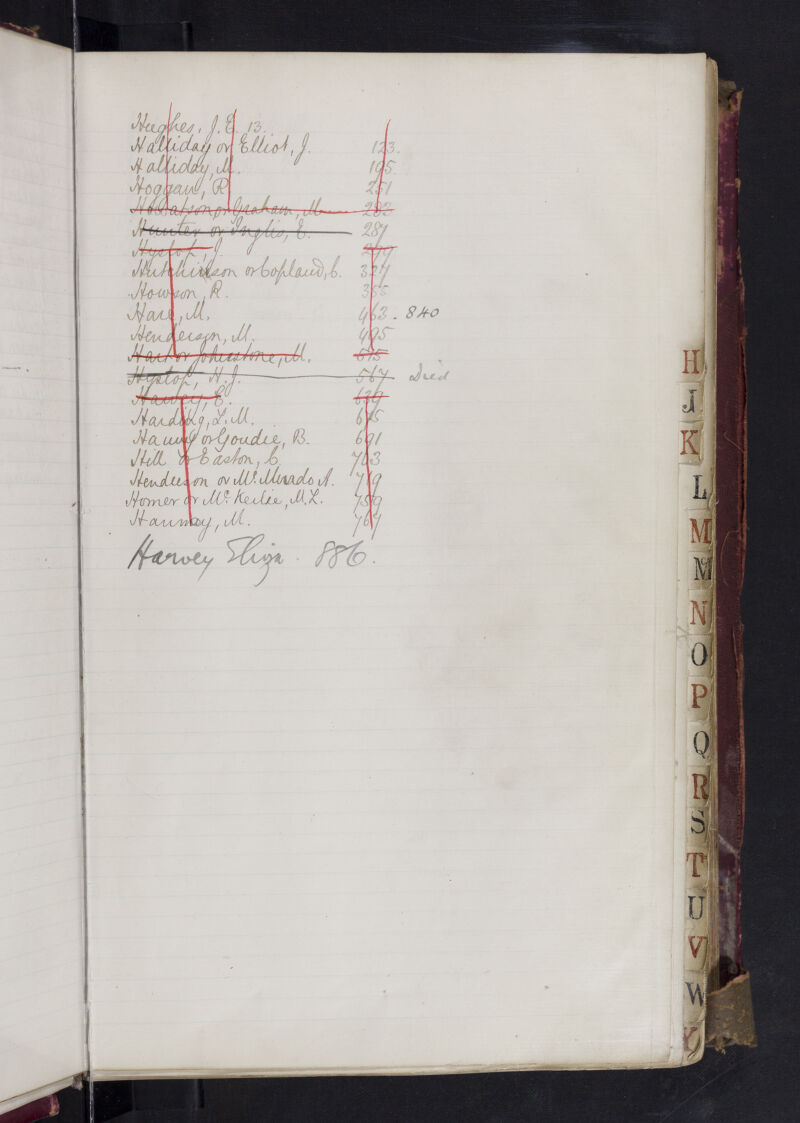 Hughes, J. E. 13.
Halliday or Elliot, J. 123.
Halliday, M. 195
Hoggan, R. 251
or Graham, M 282
Hunter or Inglis, E. 287
Hyslop, J.
Hutchinson or Copland, C. 327
Howson, R. 355
Hare, M. 463 . 840
Henderson, M. 495
Hart or Johnstone, M.
Hyslop, H. J. 567 Died
Harvey, E. 639
Harding, L. M. 675
or Goudie, B. 691
Hill or Easton, C. 703
Henderson or Mc. A. 719
Horner or Mc. Kerlie, M. L. 759
Hannay, M. 767
Harvey Eliza . 886.
H
J
K
L
M
Mc
N
O
P
Q
R
S
T
U
V
W
Y